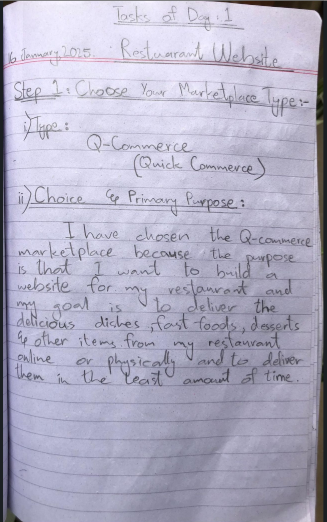 Tasks of Day : 1
16 January,2025. Restuarant Website
Step 1: Choose Your Marketplace Type:-
i) Type:
Q-Commerce
(Quick Commerce)
ii) Choice & Primary Purpose:
I have chosen the Q-commerce
marketplace because the purpose
is that I want to build a
website for my restaurant and
my goal is to deliver the
delicious dishes, fast foods, desserts
& other items from my restaurant
online or physically and to deliver
them in the least amount of time.